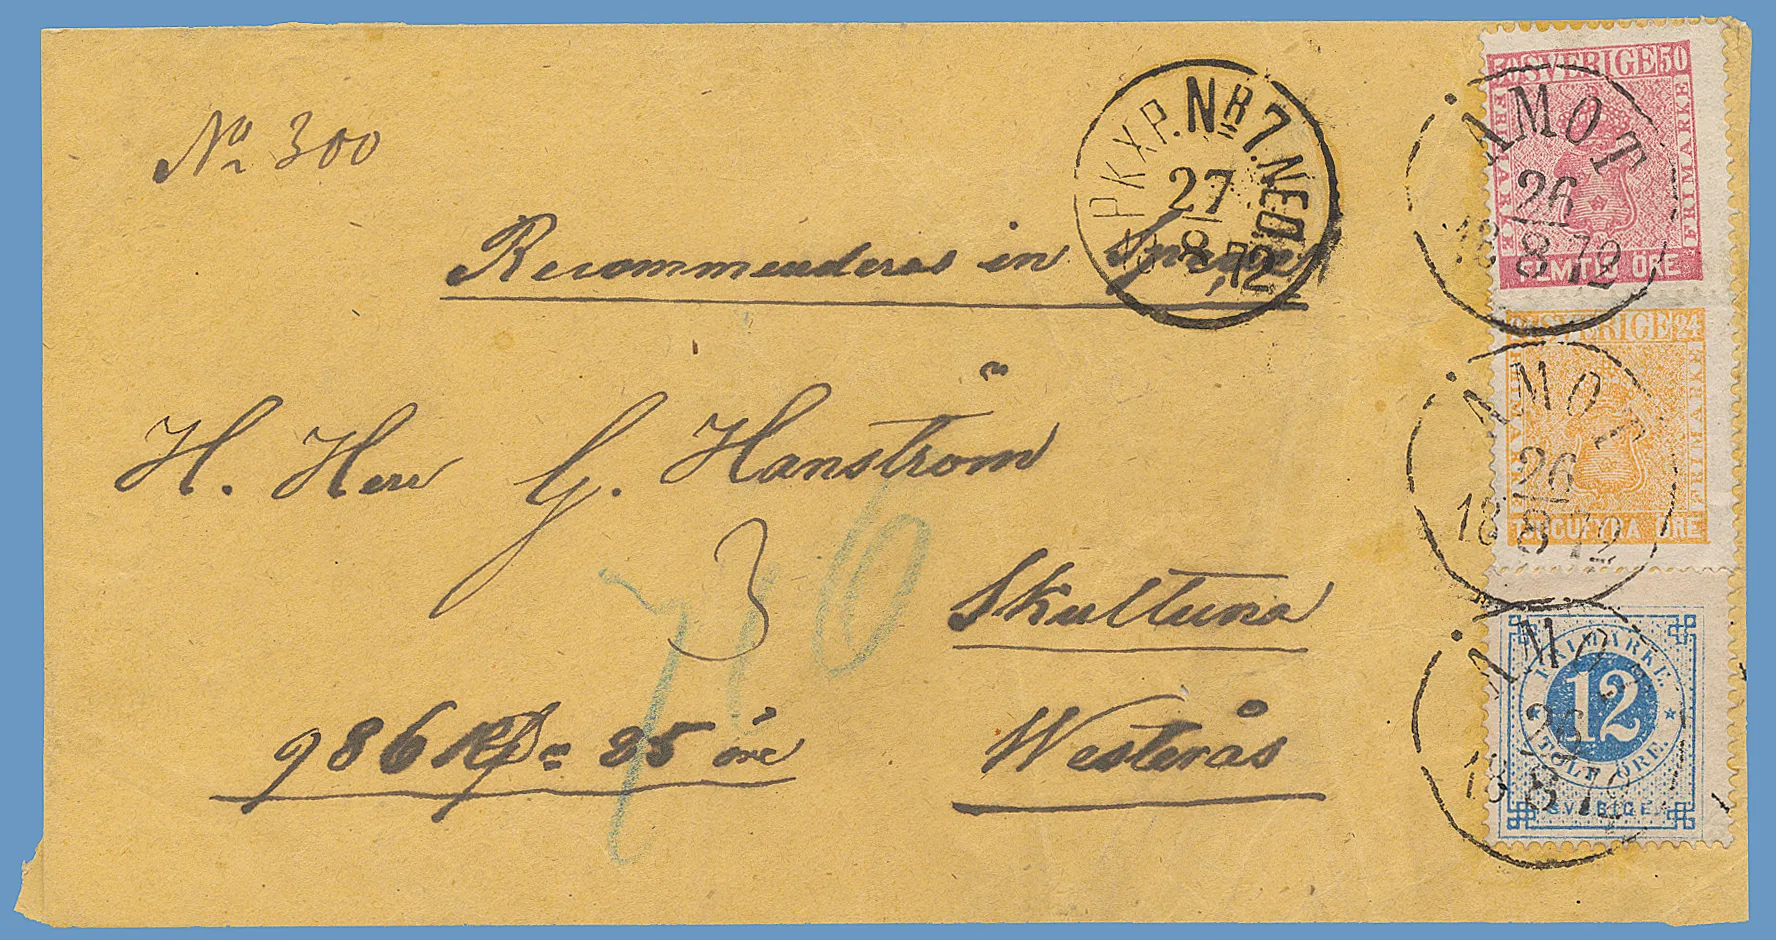 No 300
PKXP. No 7. NED
27
18 8 72
Recommenderas in
H. Herr G. Hanström
3
Skultuna
986 Rdr 85 öre
Westerås
50 SVERIGE 50
FRIMÄRKE
FRIMÄRKE
FEMTIO ÖRE
ÅMOT
26
18 8 72
24 SVERIGE 24
FRIMÄRKE
FRIMÄRKE
TJUGUFYRA ÖRE
ÅMOT
26
18 8 72
FRIMÄRKE
12
TOLF ÖRE
SVERIGE
ÅMOT
26
18 8 72